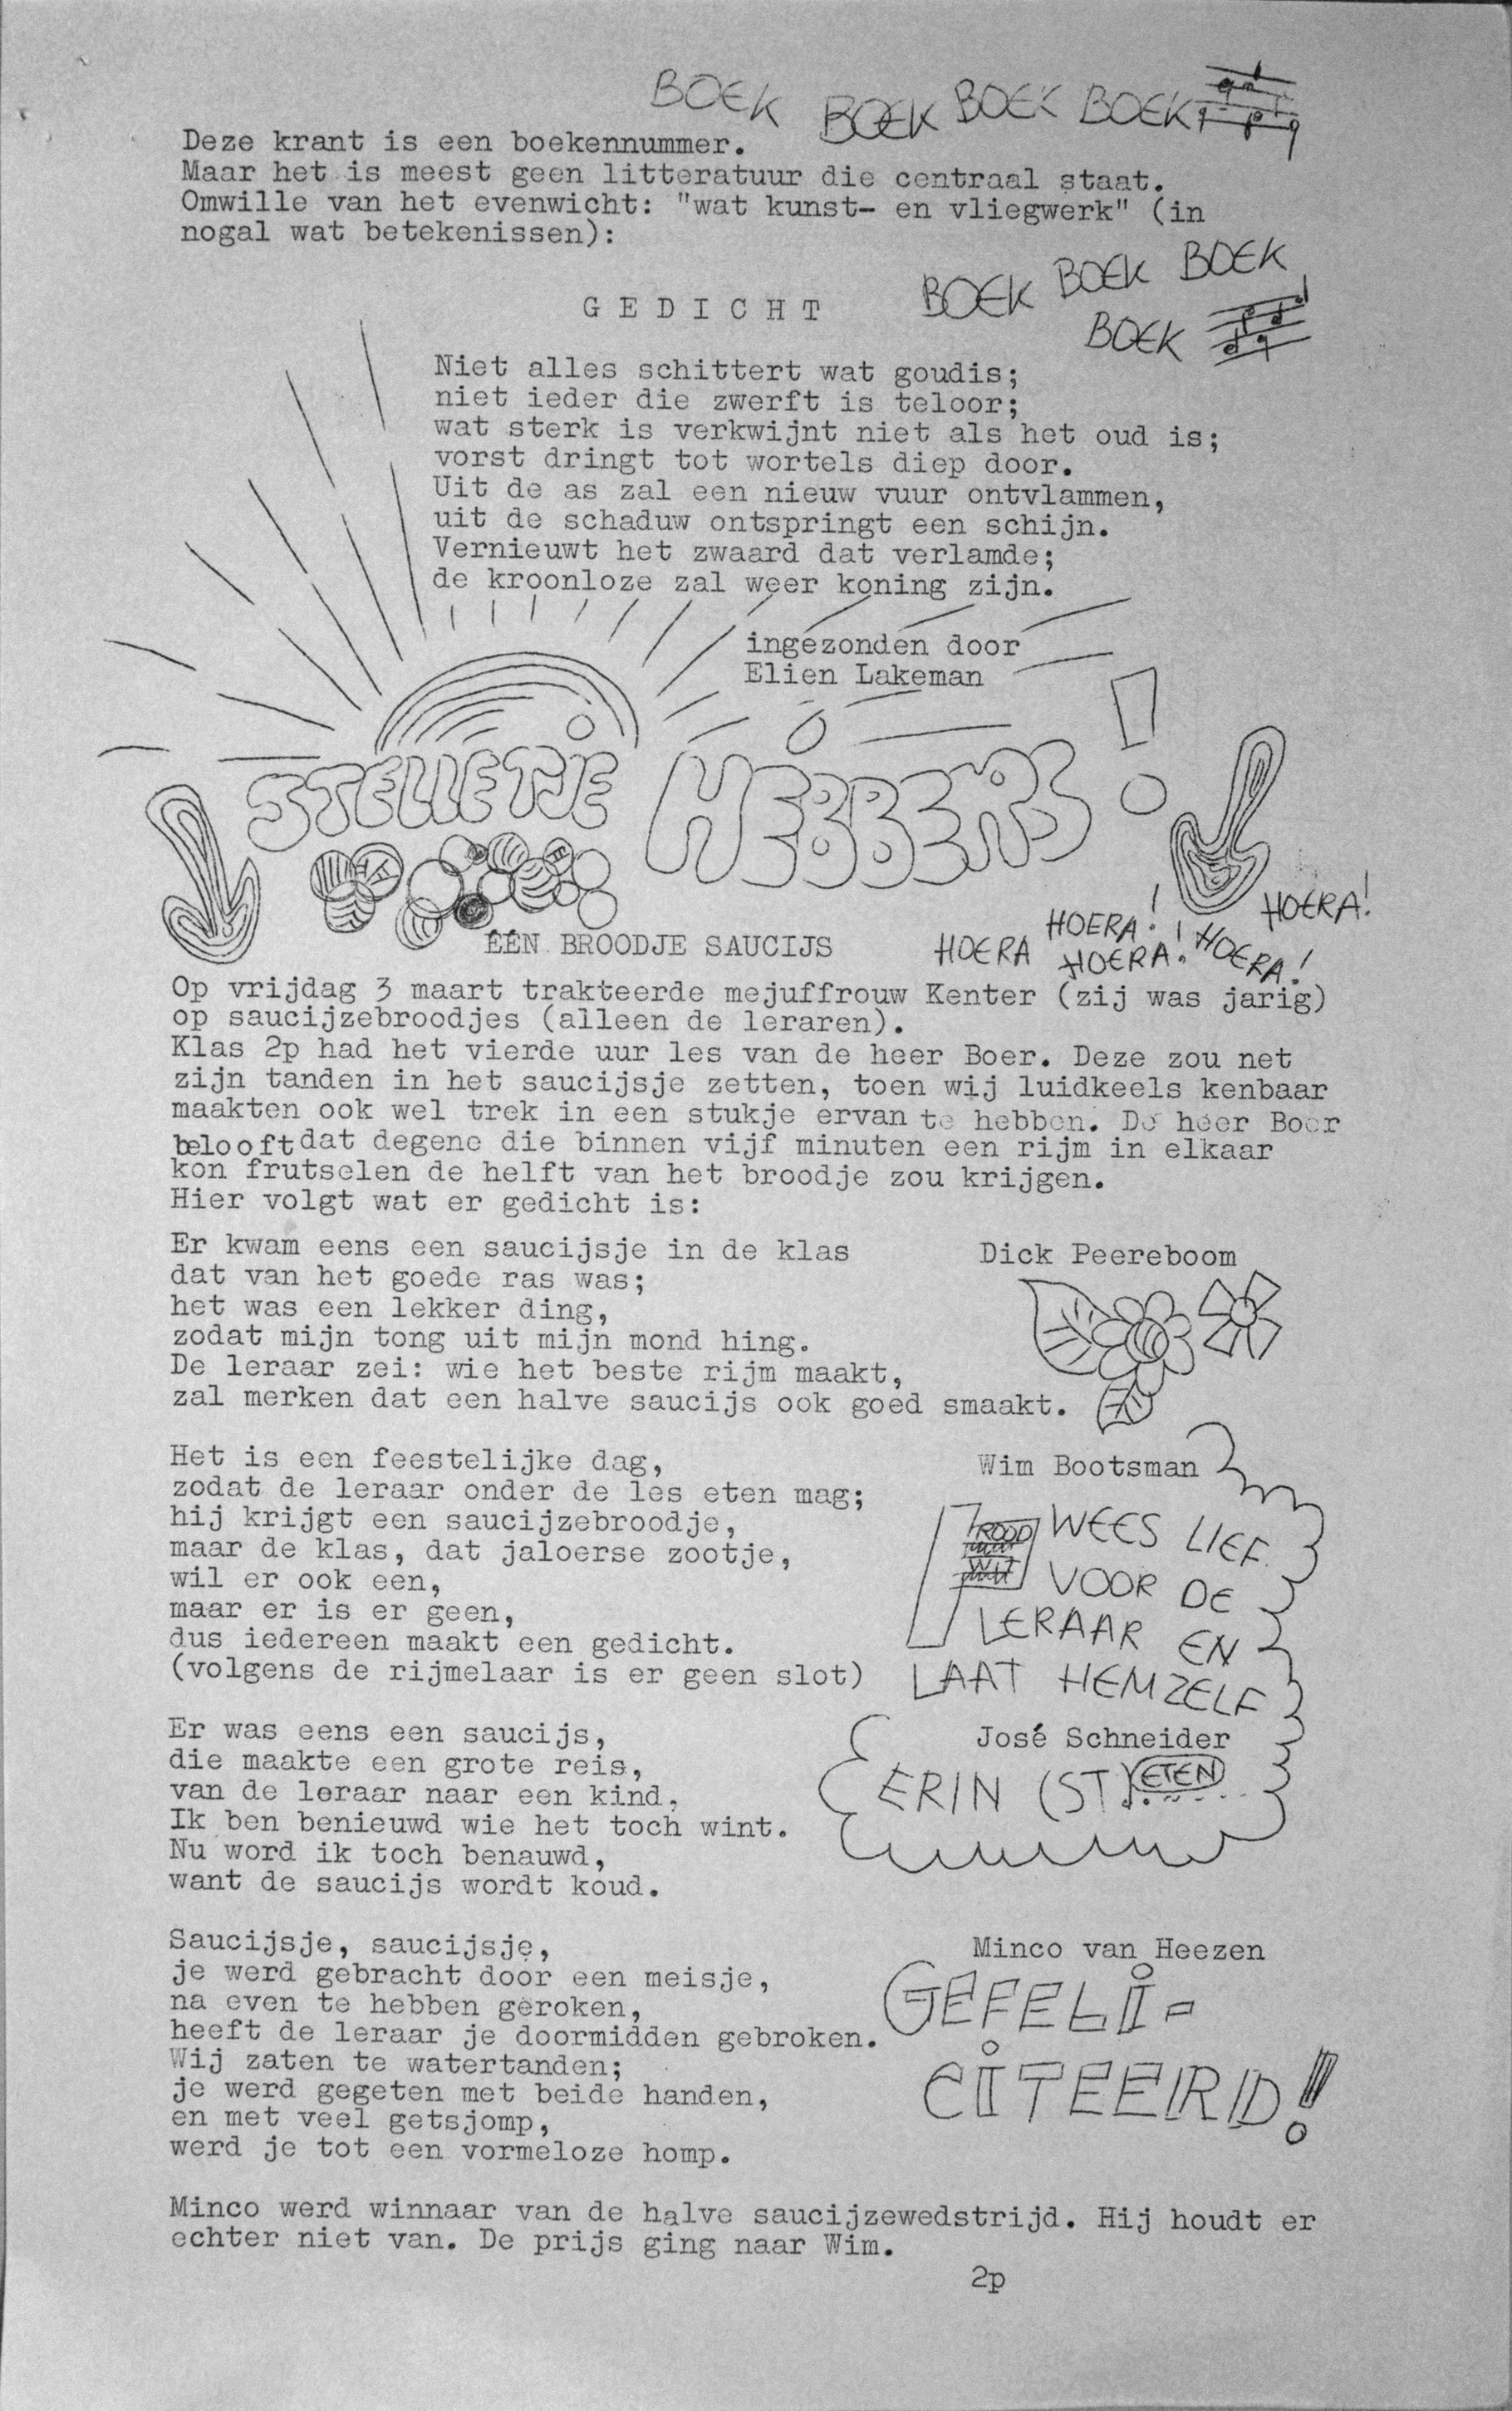 BOEK BOEK BOEK BOEK
Deze krant is een boekennummer.
Maar het is meest geen litteratuur die centraal staat.
Omwille van het evenwicht: "wat kunst- en vliegwerk" (in
nogal wat betekenissen):
BOEK BOEK BOEK
BOEK
G E D I C H T
Niet alles schittert wat goudis;
niet ieder die zwerft is teloor;
wat sterk is verkwijnt niet als het oud is;
vorst dringt tot wortels diep door.
Uit de as zal een nieuw vuur ontvlammen,
uit de schaduw ontspringt een schijn.
Vernieuwt het zwaard dat verlamde;
de kroonloze zal weer koning zijn.
ingezonden door
Elien Lakeman
STELLETJE HEBBERS!
HOERA HOERA! HOERA! HOERA! HOERA!
ÉÉN BROODJE SAUCIJS
Op vrijdag 3 maart trakteerde mejuffrouw Kenter (zij was jarig)
op saucijzebroodjes (alleen de leraren).
Klas 2p had het vierde uur les van de heer Boer. Deze zou net
zijn tanden in het saucijsje zetten, toen wij luidkeels kenbaar
maakten ook wel trek in een stukje ervan te hebben. De heer Boer
belooft dat degene die binnen vijf minuten een rijm in elkaar
kon frutselen de helft van het broodje zou krijgen.
Hier volgt wat er gedicht is:
Er kwam eens een saucijsje in de klas
dat van het goede ras was;
het was een lekker ding,
zodat mijn tong uit mijn mond hing.
De leraar zei: wie het beste rijm maakt,
zal merken dat een halve saucijs ook goed smaakt.
Dick Peereboom
Het is een feestelijke dag,
zodat de leraar onder de les eten mag;
hij krijgt een saucijzebroodje,
maar de klas, dat jaloerse zootje,
wil er ook een,
maar er is er geen,
dus iedereen maakt een gedicht.
(volgens de rijmelaar is er geen slot)
Wim Bootsman
ROOD
WIT
WEES LIEF
VOOR DE
LERAAR EN
LAAT HEMZELF
ERIN (ST) ETEN
Er was eens een saucijs,
die maakte een grote reis,
van de leraar naar een kind.
Ik ben benieuwd wie het toch wint.
Nu word ik toch benauwd,
want de saucijs wordt koud.
José Schneider
Saucijsje, saucijsje,
je werd gebracht door een meisje,
na even te hebben geroken,
heeft de leraar je doormidden gebroken.
Wij zaten te watertanden;
je werd gegeten met beide handen,
en met veel getsjomp,
werd je tot een vormeloze homp.
Minco van Heezen
GEFELI=
CITEERD!
Minco werd winnaar van de halve saucijzewedstrijd. Hij houdt er
echter niet van. De prijs ging naar Wim.
2p